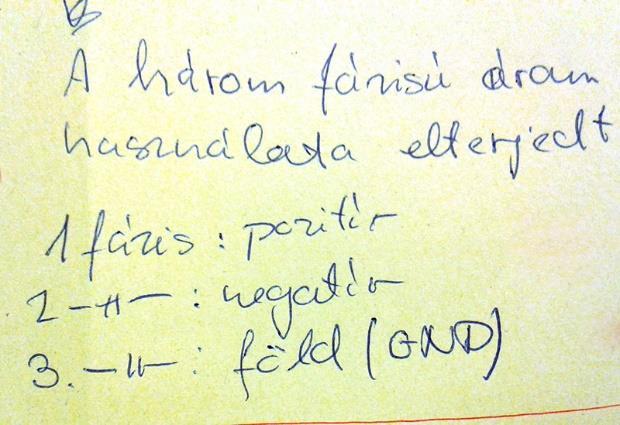 A három fázisú áram
használata elterjedt
1 fázis : pozitív
2 -11- : negatív
3. -11- : föld (GND)